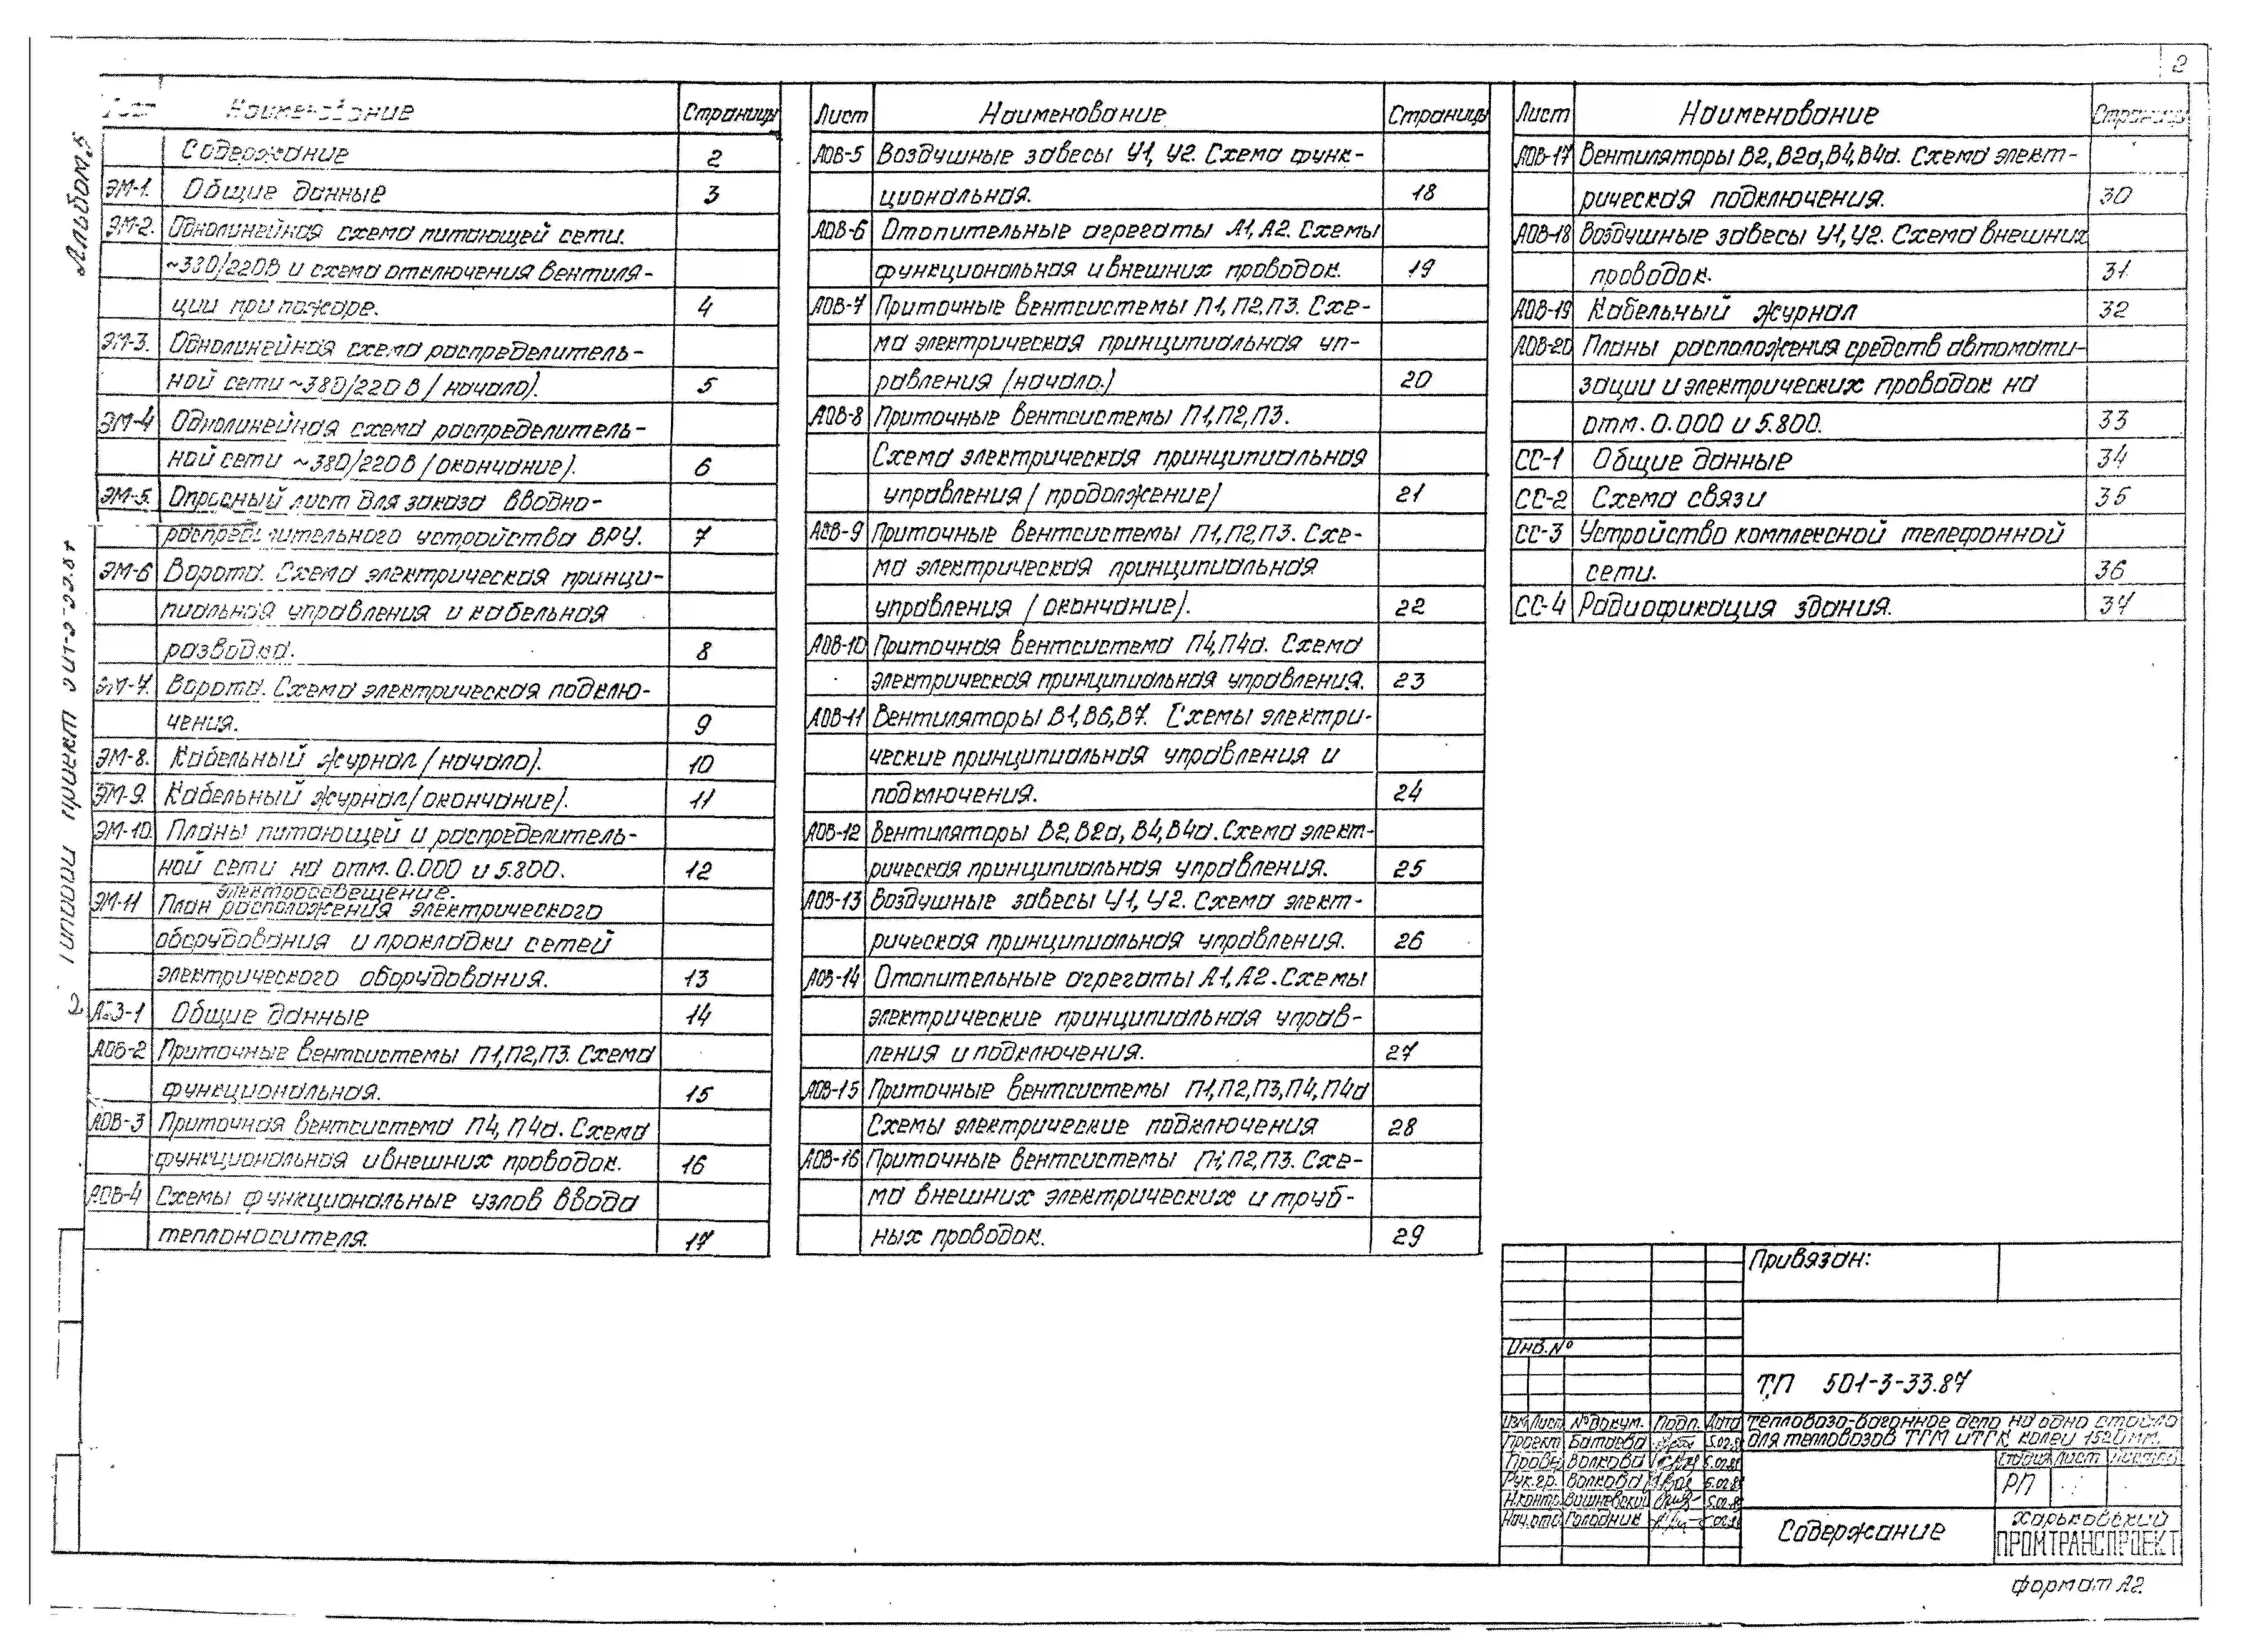 2
Альбом 5
Типовой проект 501-3-33.87
Лист Наименование Страницы
Содержание 2
ЭМ-1. Общие данные 3
ЭМ-2. Однолинейная схема питающей сети.
~380/220В и схема отключения вентиля-
ции при пожаре. 4
ЭМ-3. Однолинейная схема распределитель-
ной сети ~380/220В (начало). 5
ЭМ-4 Однолинейная схема распределитель-
ной сети ~380/220В (окончание). 6
ЭМ-5. Опросный лист для заказа вводно-
распределительного устройства ВРУ. 7
ЭМ-6 Ворота. Схема электрическая принци-
пиальная управления и кабельная
разводка. 8
ЭМ-7. Ворота. Схема электрическая подклю-
чения. 9
ЭМ-8. Кабельный журнал (начало). 10
ЭМ-9. Кабельный журнал (окончание). 11
ЭМ-10. Планы питающей и распределитель-
ной сети на отм. 0.000 и 5.800. 12
электроосвещение.
ЭМ-11 План расположения электрического
оборудования и прокладки сетей
электрического оборудования. 13
АОВ-1 Общие данные 14
АОВ-2 Приточные вентсистемы П1,П2,П3. Схема
функциональная. 15
АОВ-3 Приточная вентсистема П4, П4а. Схема
функциональная и внешних проводок. 16
АОВ-4 Схемы функциональные узлов ввода
теплоносителя. 17
Лист Наименование Страницы
АОВ-5 Воздушные завесы У1, У2. Схема функ-
циональная. 18
АОВ-6 Отопительные агрегаты А1, А2. Схемы
функциональная и внешних проводок. 19
АОВ-7 Приточные вентсистемы П1, П2, П3. Схе-
ма электрическая принципиальная уп-
равления (начало.) 20
АОВ-8 Приточные вентсистемы П1,П2,П3.
Схема электрическая принципиальная
управления (продолжение) 21
АОВ-9 Приточные вентсистемы П1,П2,П3. Схе-
ма электрическая принципиальная
управления (окончание). 22
АОВ-10 Приточная вентсистема П4,П4а. Схема
электрическая принципиальная управления. 23
АОВ-11 Вентиляторы В1,В6,В7. Схемы электри-
ческие принципиальная управления и
подключения. 24
АОВ-12 Вентиляторы В2,В2а, В4,В4а. Схема элект-
рическая принципиальная управления. 25
АОВ-13 Воздушные завесы У1, У2. Схема элект-
рическая принципиальная управления. 26
АОВ-14 Отопительные агрегаты А1, А2. Схемы
электрические принципиальная управ-
ления и подключения. 27
АОВ-15 Приточные вентсистемы П1,П2,П3,П4,П4а
Схемы электрические подключения 28
АОВ-16 Приточные вентсистемы П1,П2,П3. Схе-
ма внешних электрических и труб-
ных проводок. 29
Лист Наименование Страницы
АОВ-17 Вентиляторы В2, В2а, В4, В4а. Схема элект-
рическая подключения. 30
АОВ-18 Воздушные завесы У1, У2. Схема внешних
проводок. 31
АОВ-19 Кабельный журнал 32
АОВ-20 Планы расположения средств автомати-
зации и электрических проводок на
отм. 0.000 и 5.800. 33
СС-1 Общие данные 34
СС-2 Схема связи 35
СС-3 Устройство комплексной телефонной
сети. 36
СС-4 Радиофикация здания. 37
Привязан:
Инв.№
ТП 501-3-33.87
Изм. Лист №докум. Подп. Дата
Тепловозо-вагонное депо на одно стойло
для тепловозов ТГМ и ТГК колеи 1520мм.
Проект Батаева
Провер. Волкова
Рук.гр. Волкова
Н.контр. Вишневский
Нач.отд. Голодник
Стадия Лист Листов
РП
Содержание
Харьковский
ПРОМТРАНСПРОЕКТ
формат А2